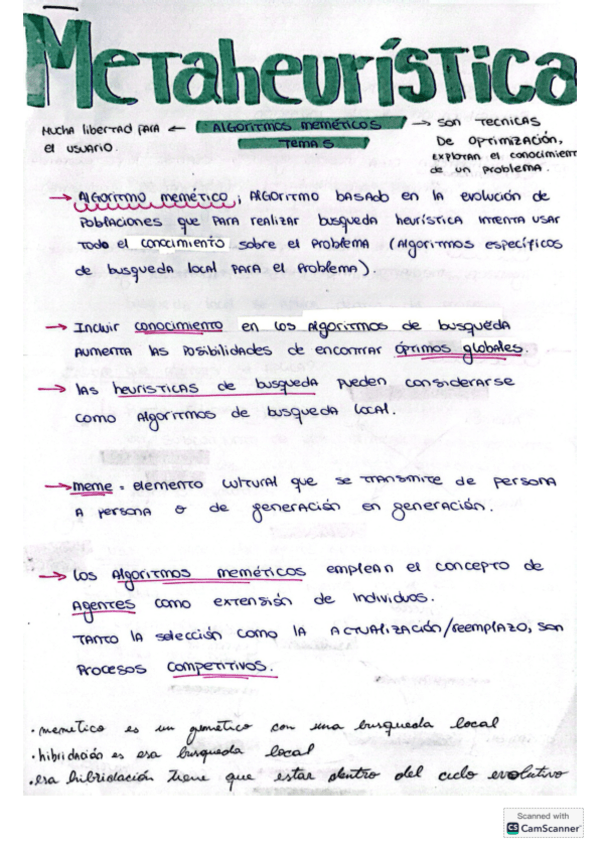 Metaheurística
Mucha libertad para el usuario.
Algoritmos meméticos
Tema 5
Son tecnicas
De optimización,
explotan el conocimient
de un problema.
→ Algoritmo memético; Algoritmo basado en la evolución de
poblaciones que para realizar busqueda heurística intenta usar
todo el conocimiento sobre el problema (Algoritmos específicos
de busqueda local para el problema).
→ Incluir conocimiento en los algoritmos de busqueda
aumenta las posibilidades de encontrar óptimos globales.
→ las heuristicas de busqueda pueden considerarse
como algoritmos de busqueda local.
→ meme: elemento cultural que se transmite de persona
a persona o de generación en generación.
→ los Algoritmos meméticos emplean el concepto de
Agentes como extensión de individuos.
Tanto la selección como la actualización/reemplazo, son
procesos competitivos.
• memetico es un genético con una busqueda local
• hibridación es esa busqueda local
• esa hibridación tiene que estar dentro del ciclo evolutivo
Scanned with
CS CamScanner